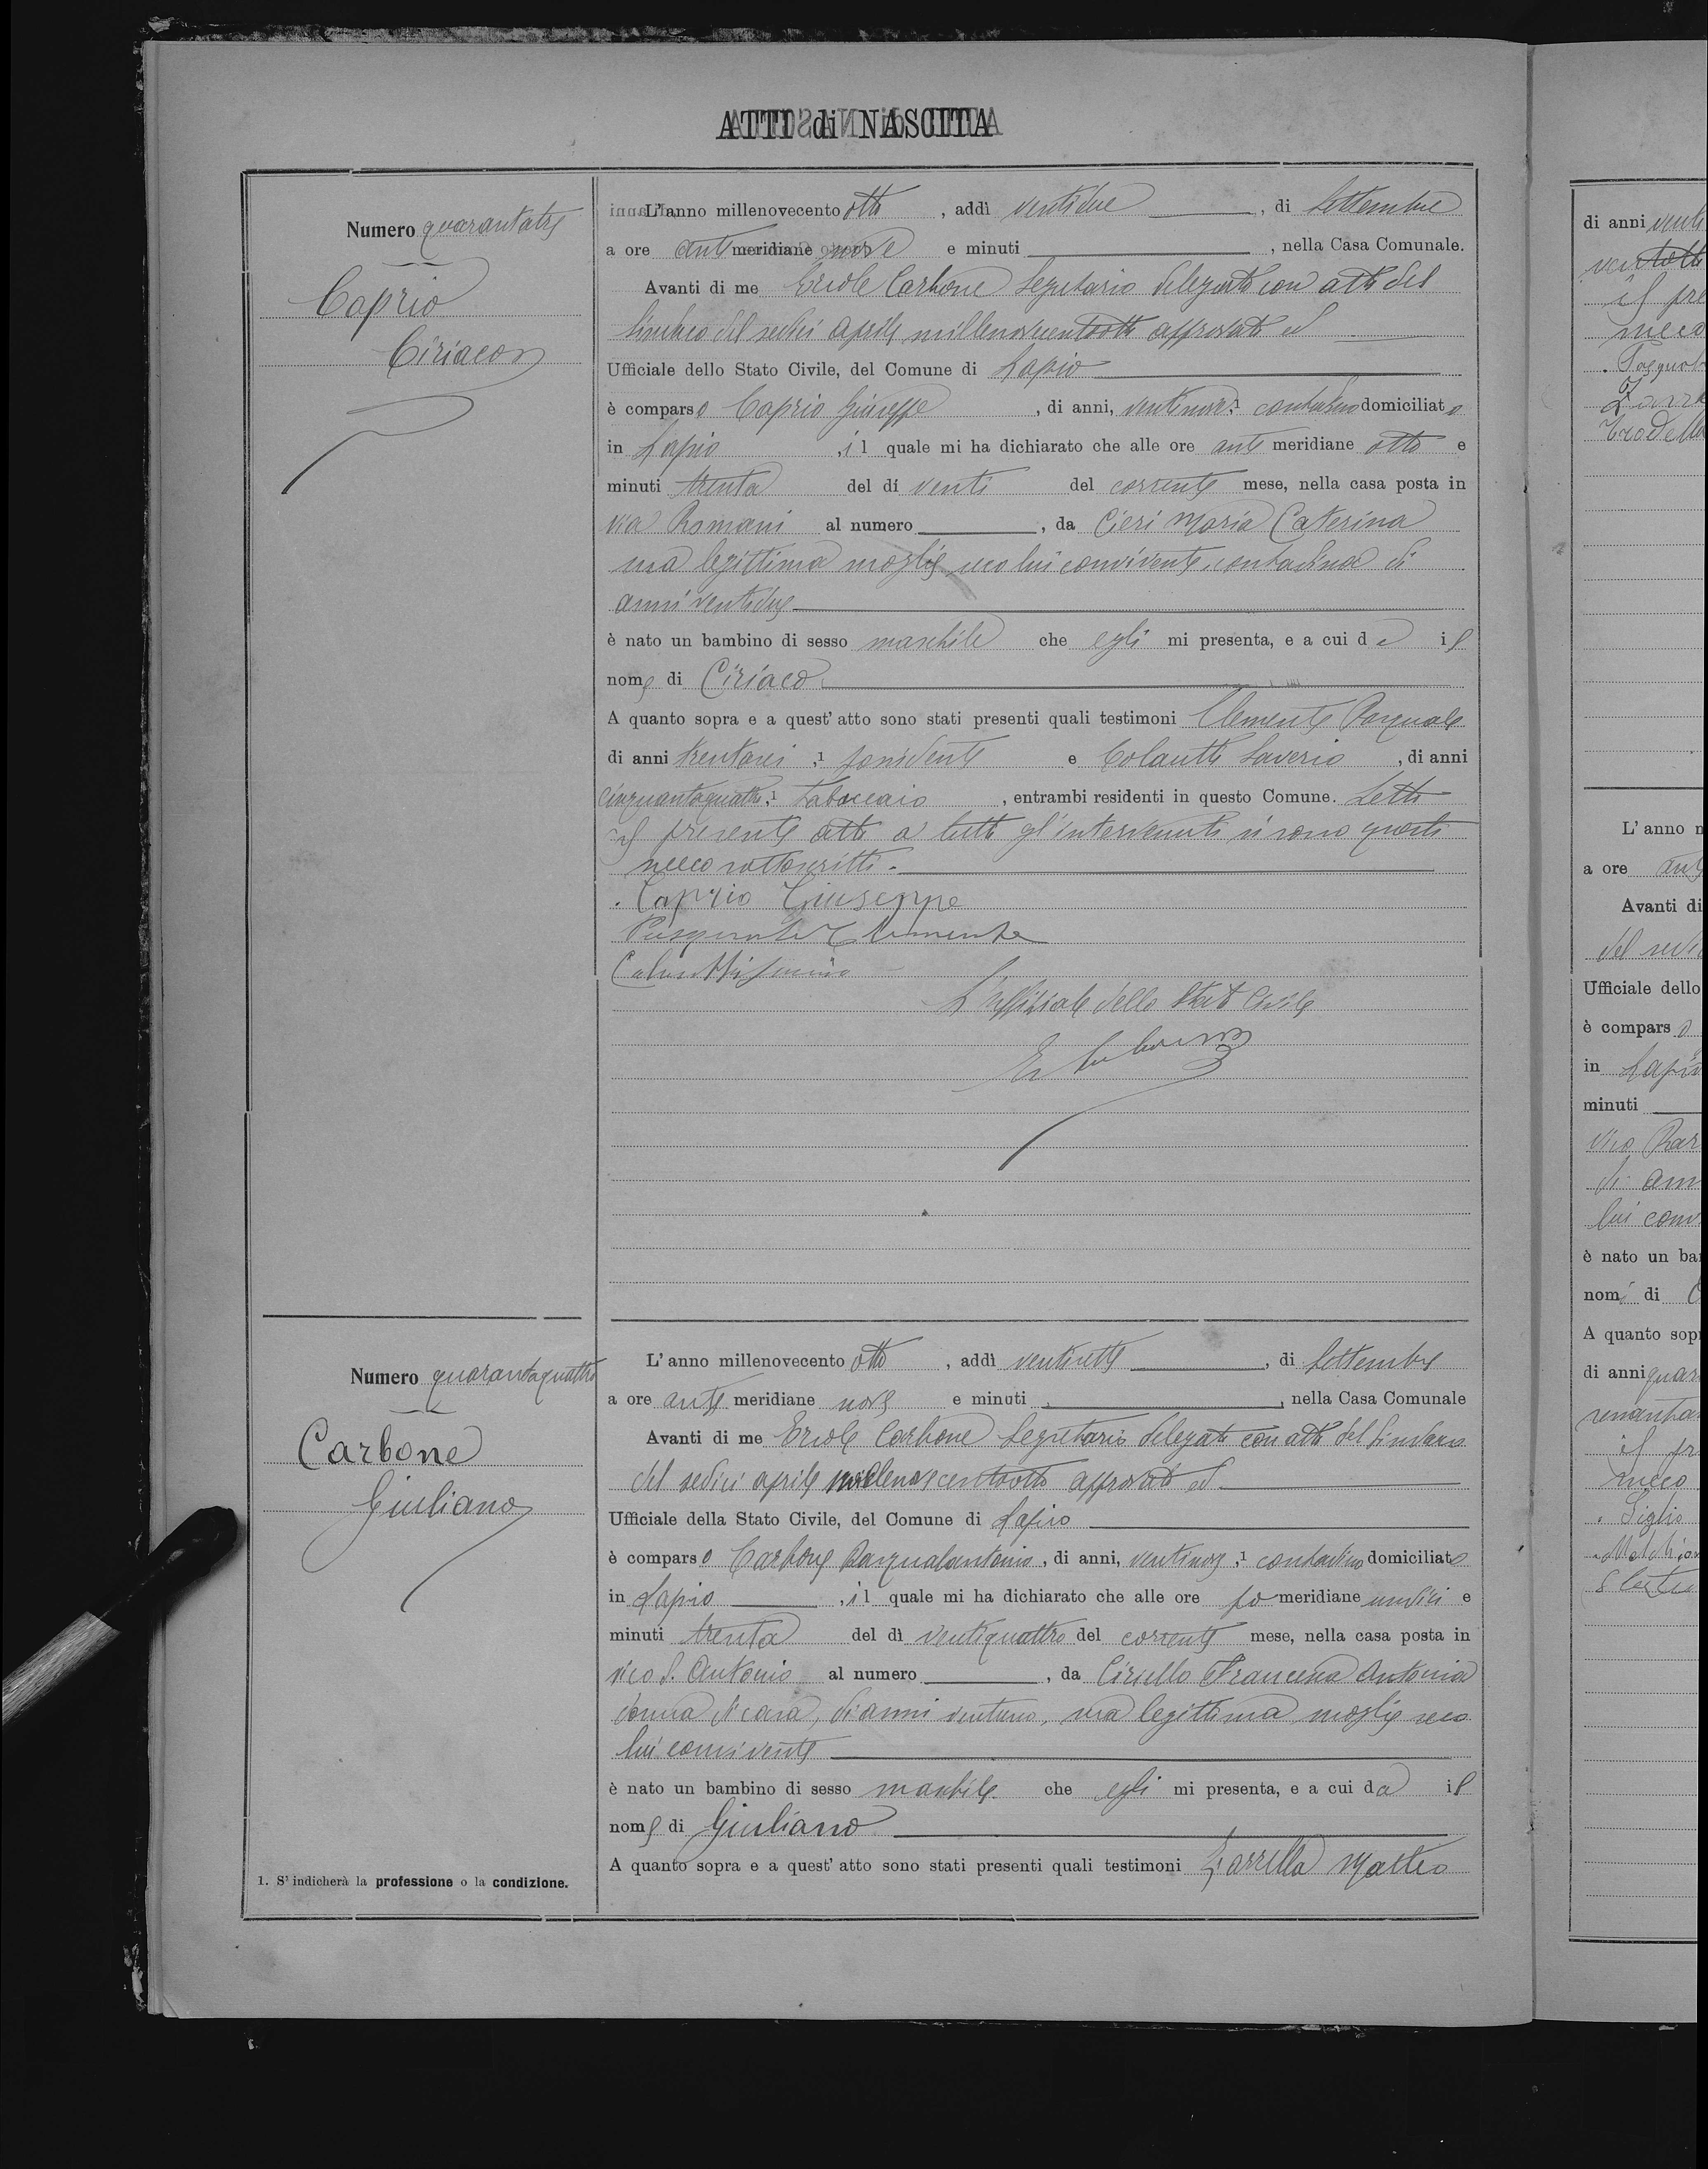 ATTI di NASCITA
Numero quarantatre
Caprio
Ciriaco
L'anno millenovecento otto, addì ventidue, di Settembre
a ore antimeridiane nove e minuti, nella Casa Comunale.
Avanti di me Ercole Carbone Segretario delegato con atto del
Sindaco del sedici aprile millenovecentootto approvato ed
Ufficiale dello Stato Civile, del Comune di Lapio
è comparso Caprio Giuseppe, di anni, ventinove,¹ contadino domiciliato
in Lapio, il quale mi ha dichiarato che alle ore ante meridiane otto e
minuti trenta del dí venti del corrente mese, nella casa posta in
via Romani al numero, da Cieri Maria Caterina
sua legittima moglie seco lui convivente, contadina di
anni ventidue
è nato un bambino di sesso maschile che egli mi presenta, e a cui dà il
nome di Ciriaco
A quanto sopra e a quest' atto sono stati presenti quali testimoni Clemente Pasquale
di anni trentasei,¹ possidente e Colantti Saverio, di anni
cinquantaquattro,¹ tabaccaio, entrambi residenti in questo Comune. Letto
il presente atto a tutti gl'intervenuti si sono questi
meco sottoscritti.
Caprio Giuseppe
Pasquale Clemente
L'Uffiziale dello Stato Civile
Numero quarantaquattro
Carbone
Giuliano
L' anno millenovecento otto, addì ventisette, di Settembre
a ore ante meridiane nove e minuti, nella Casa Comunale
Avanti di me Ercole Carbone Segretario delegato con atto del Sindaco
del sedici aprile millenovecentootto approvato ed
Ufficiale della Stato Civile, del Comune di Lapio
è comparso Carbone Pasqualantonio, di anni, ventinove,¹ contadino domiciliato
in Lapio, il quale mi ha dichiarato che alle ore po meridiane undici e
minuti trenta del dì ventiquattro del corrente mese, nella casa posta in
vico S. Antonio al numero, da Ciriello Francesca Antonia
donna di casa, di anni ventuno, sua legittima moglie seco
lui convivente
è nato un bambino di sesso maschile che egli mi presenta, e a cui dà il
nome di Giuliano
A quanto sopra e a quest' atto sono stati presenti quali testimoni Zarrella Matteo
1. S' indicherà la professione o la condizione.
di anni
il pre
meco
L' anno
a ore ant
Avanti di
del sedici
Ufficiale dello
è comparso
in Lapio
minuti
vico
di anni
lui conv
è nato un ba
nome di
A quanto sop
di anni quar
il pr
meco